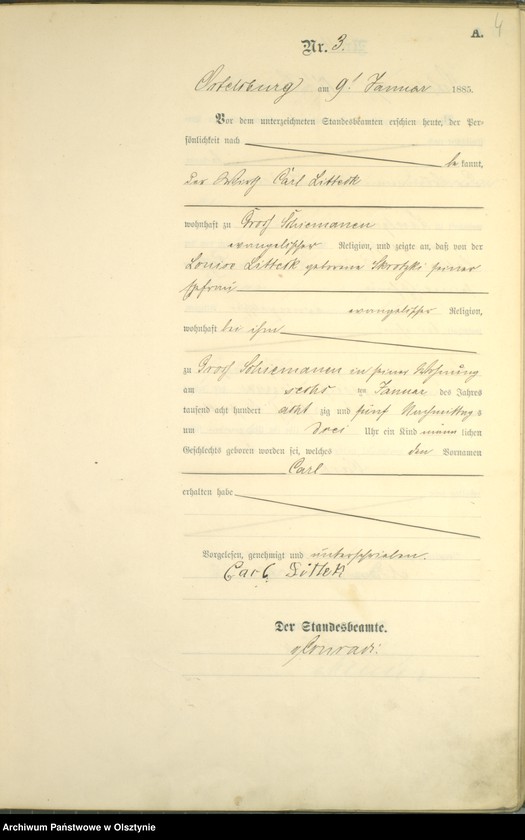 4
A.
Nr. 3.
Ortelsburg am 9ᵗ Januar 1885.
Vor dem unterzeichneten Standesbeamten erschien heute, der Per-
sönlichkeit nach
bekannt,
der Wirth Carl Litteck
wohnhaft zu Groß Schiemanen
evangelischer Religion, und zeigte an, daß von der
Louise Litteck geborene Skrotzki seiner
Ehefrau
evangelischer Religion,
wohnhaft bei ihm
zu Groß Schiemanen in seiner Wohnung
am sechs ten Januar des Jahres
tausend acht hundert acht zig und fünf Nachmittags
um drei Uhr ein Kind männlichen
Geschlechts geboren worden sei, welches den Vornamen
Carl
erhalten habe
Vorgelesen, genehmigt und unterschrieben.
Carl Littek
Der Standesbeamte.
Conradi
Archiwum Państwowe w Olsztynie